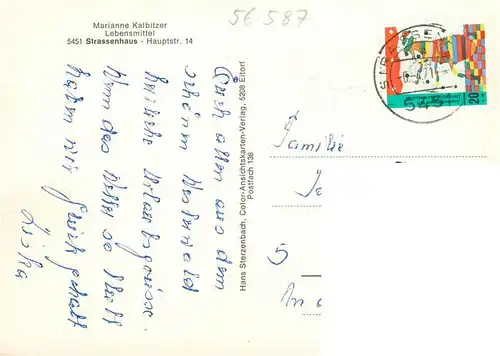 5E 587
Marianne Kalbitzer
Lebensmittel
5451 Strassenhaus - Hauptstr. 14
Euch allen aus dem
schönen Westerwald
herzliche Urlaubsgrüsse.
Wenn das Wetter so bleibt
haben wir Glück gehabt
Hans Sterzenbach, Color-Ansichtskarten-Verlag, 5208 Eitorf
Postfach 136
20
Familie
5